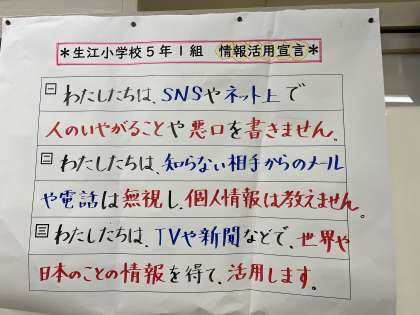 ＊生江小学校５年１組　情報活用宣言＊
一 わたしたちは、SNSやネット上で
人のいやがることや悪口を書きません。
二 わたしたちは、知らない相手からのメール
や電話は無視し、個人情報は教えません。
三 わたしたちは、TVや新聞などで、世界や
日本のことの情報を得て、活用します。